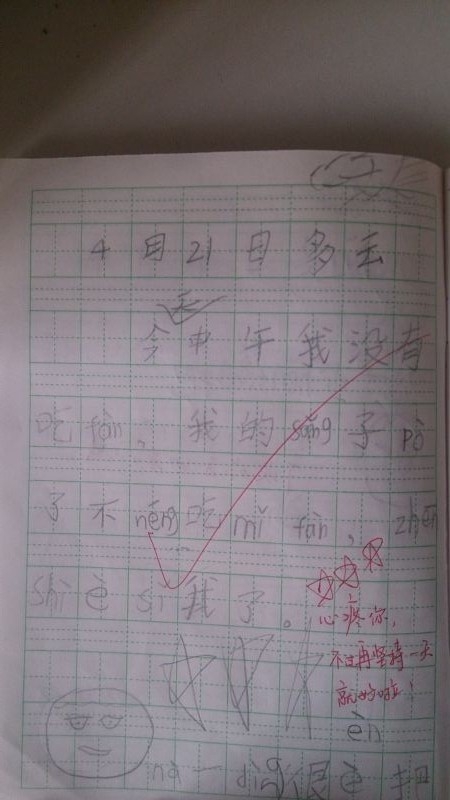 4月21日多云
天
今中午我没有
吃fàn，我的sǎng子pò
了不néng吃mǐ fàn，zhēn
shì è sǐ我了。
心疼你，
不过再坚持一天
就好啦！
èn
nà一dìng很è